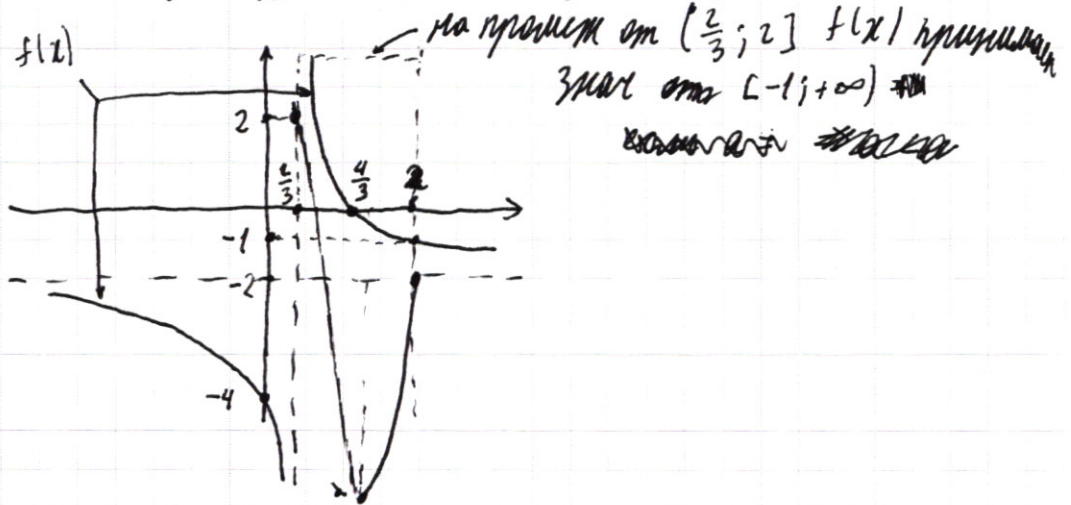 на промеж от (2/3; 2] f(x) принимает
знач от [-1; +∞)
f(x)
2
2/3
4/3
2
-1
-2
-4